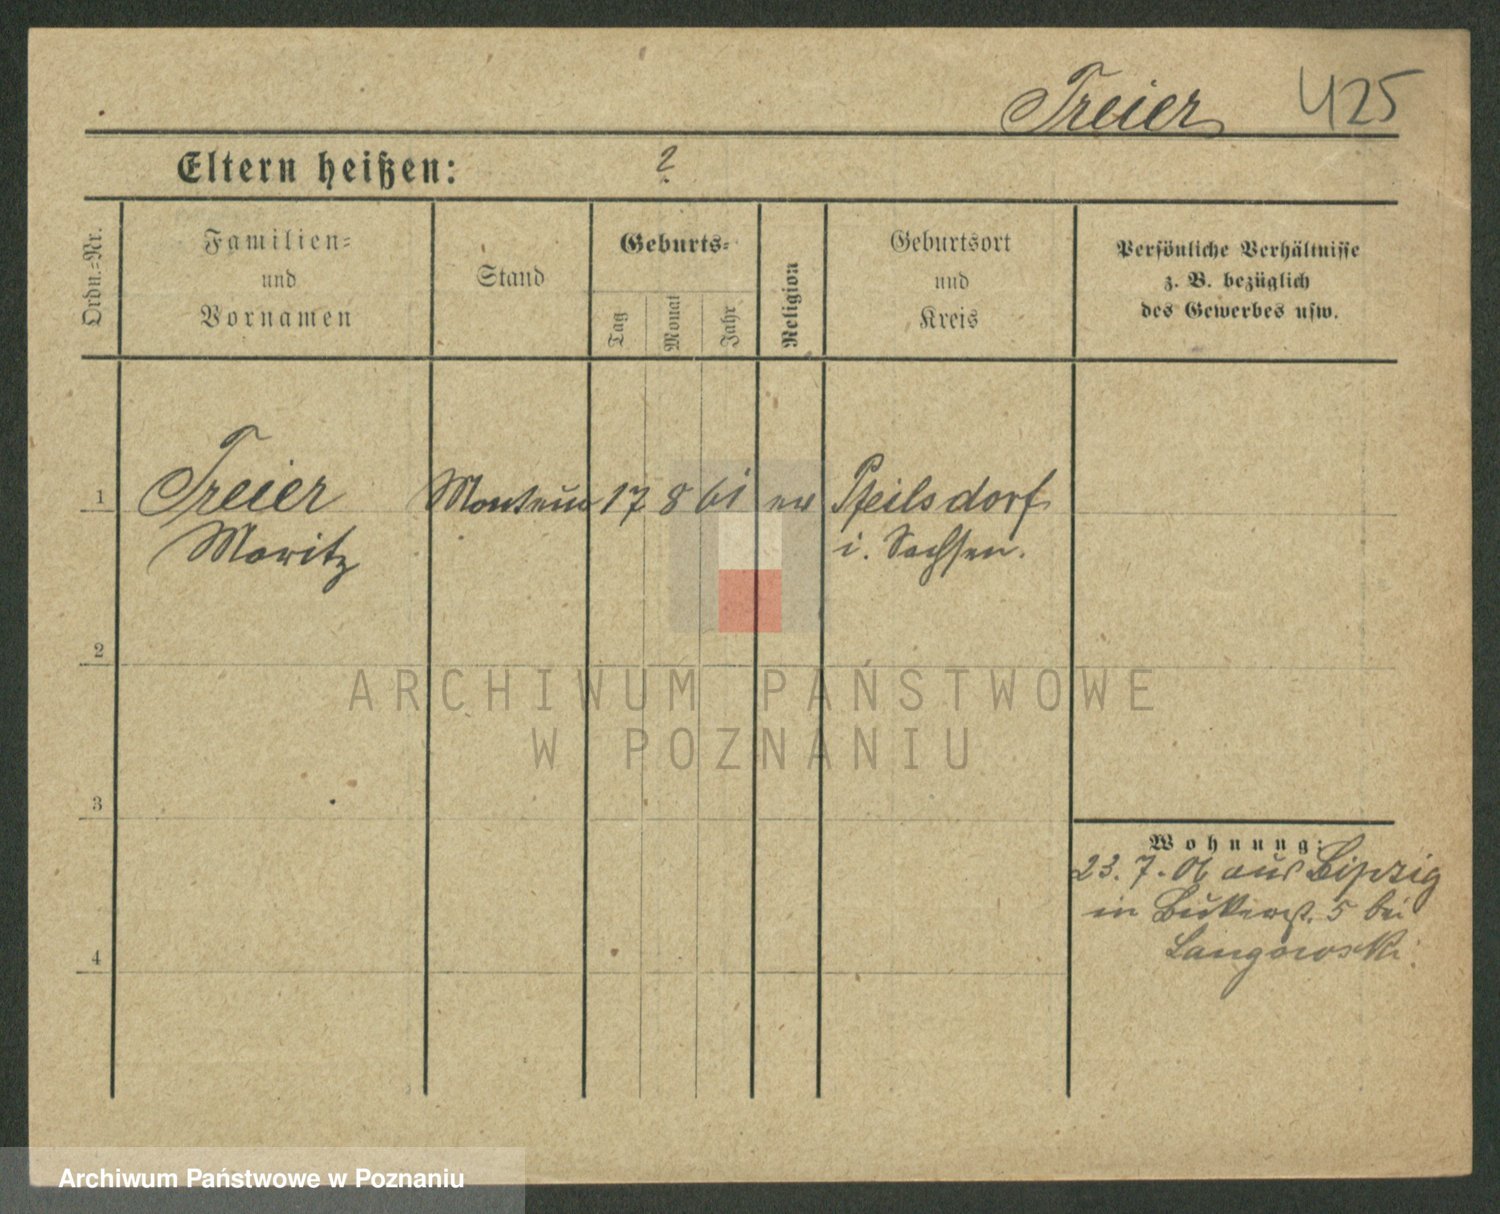 Treier 425
Eltern heißen: ?
Ordn.=Nr.
Familien=
und
Vornamen
Stand
Geburts=
Tag
Monat
Jahr
Religion
Geburtsort
und
Kreis
Persönliche Verhältnisse
z. B. bezüglich
des Gewerbes usw.
1 Treier Monteur 17 8 61 ev Pfeilsdorf
Moritz i. Sachsen.
2
3
4
Wohnung:
23. 7. 06 aus Leipzig
in Bukerst. 5 bei
Langowski.
ARCHIWUM PAŃSTWOWE
W POZNANIU
Archiwum Państwowe w Poznaniu